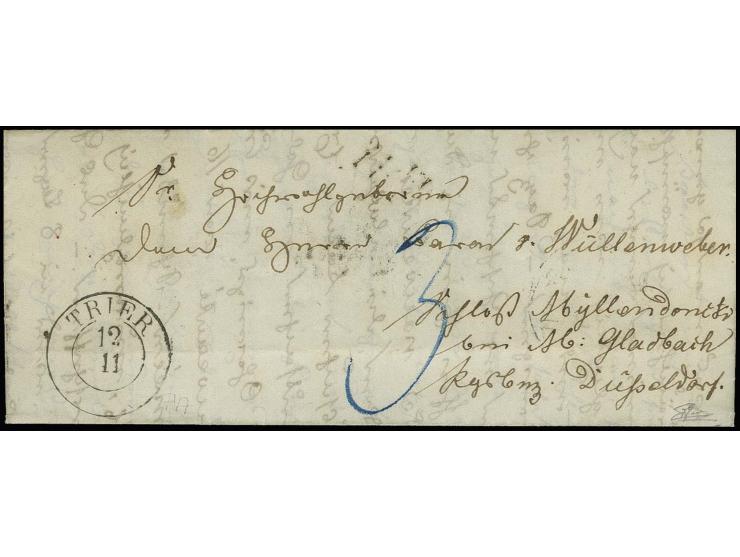 Sr. Hochwohlgeboren
dem Herrn Baron v. Wüllenweber.
Schloß Myllendonck
bei M: Gladbach
Rgsbez. Düsseldorf.
3
TRIER
12
11